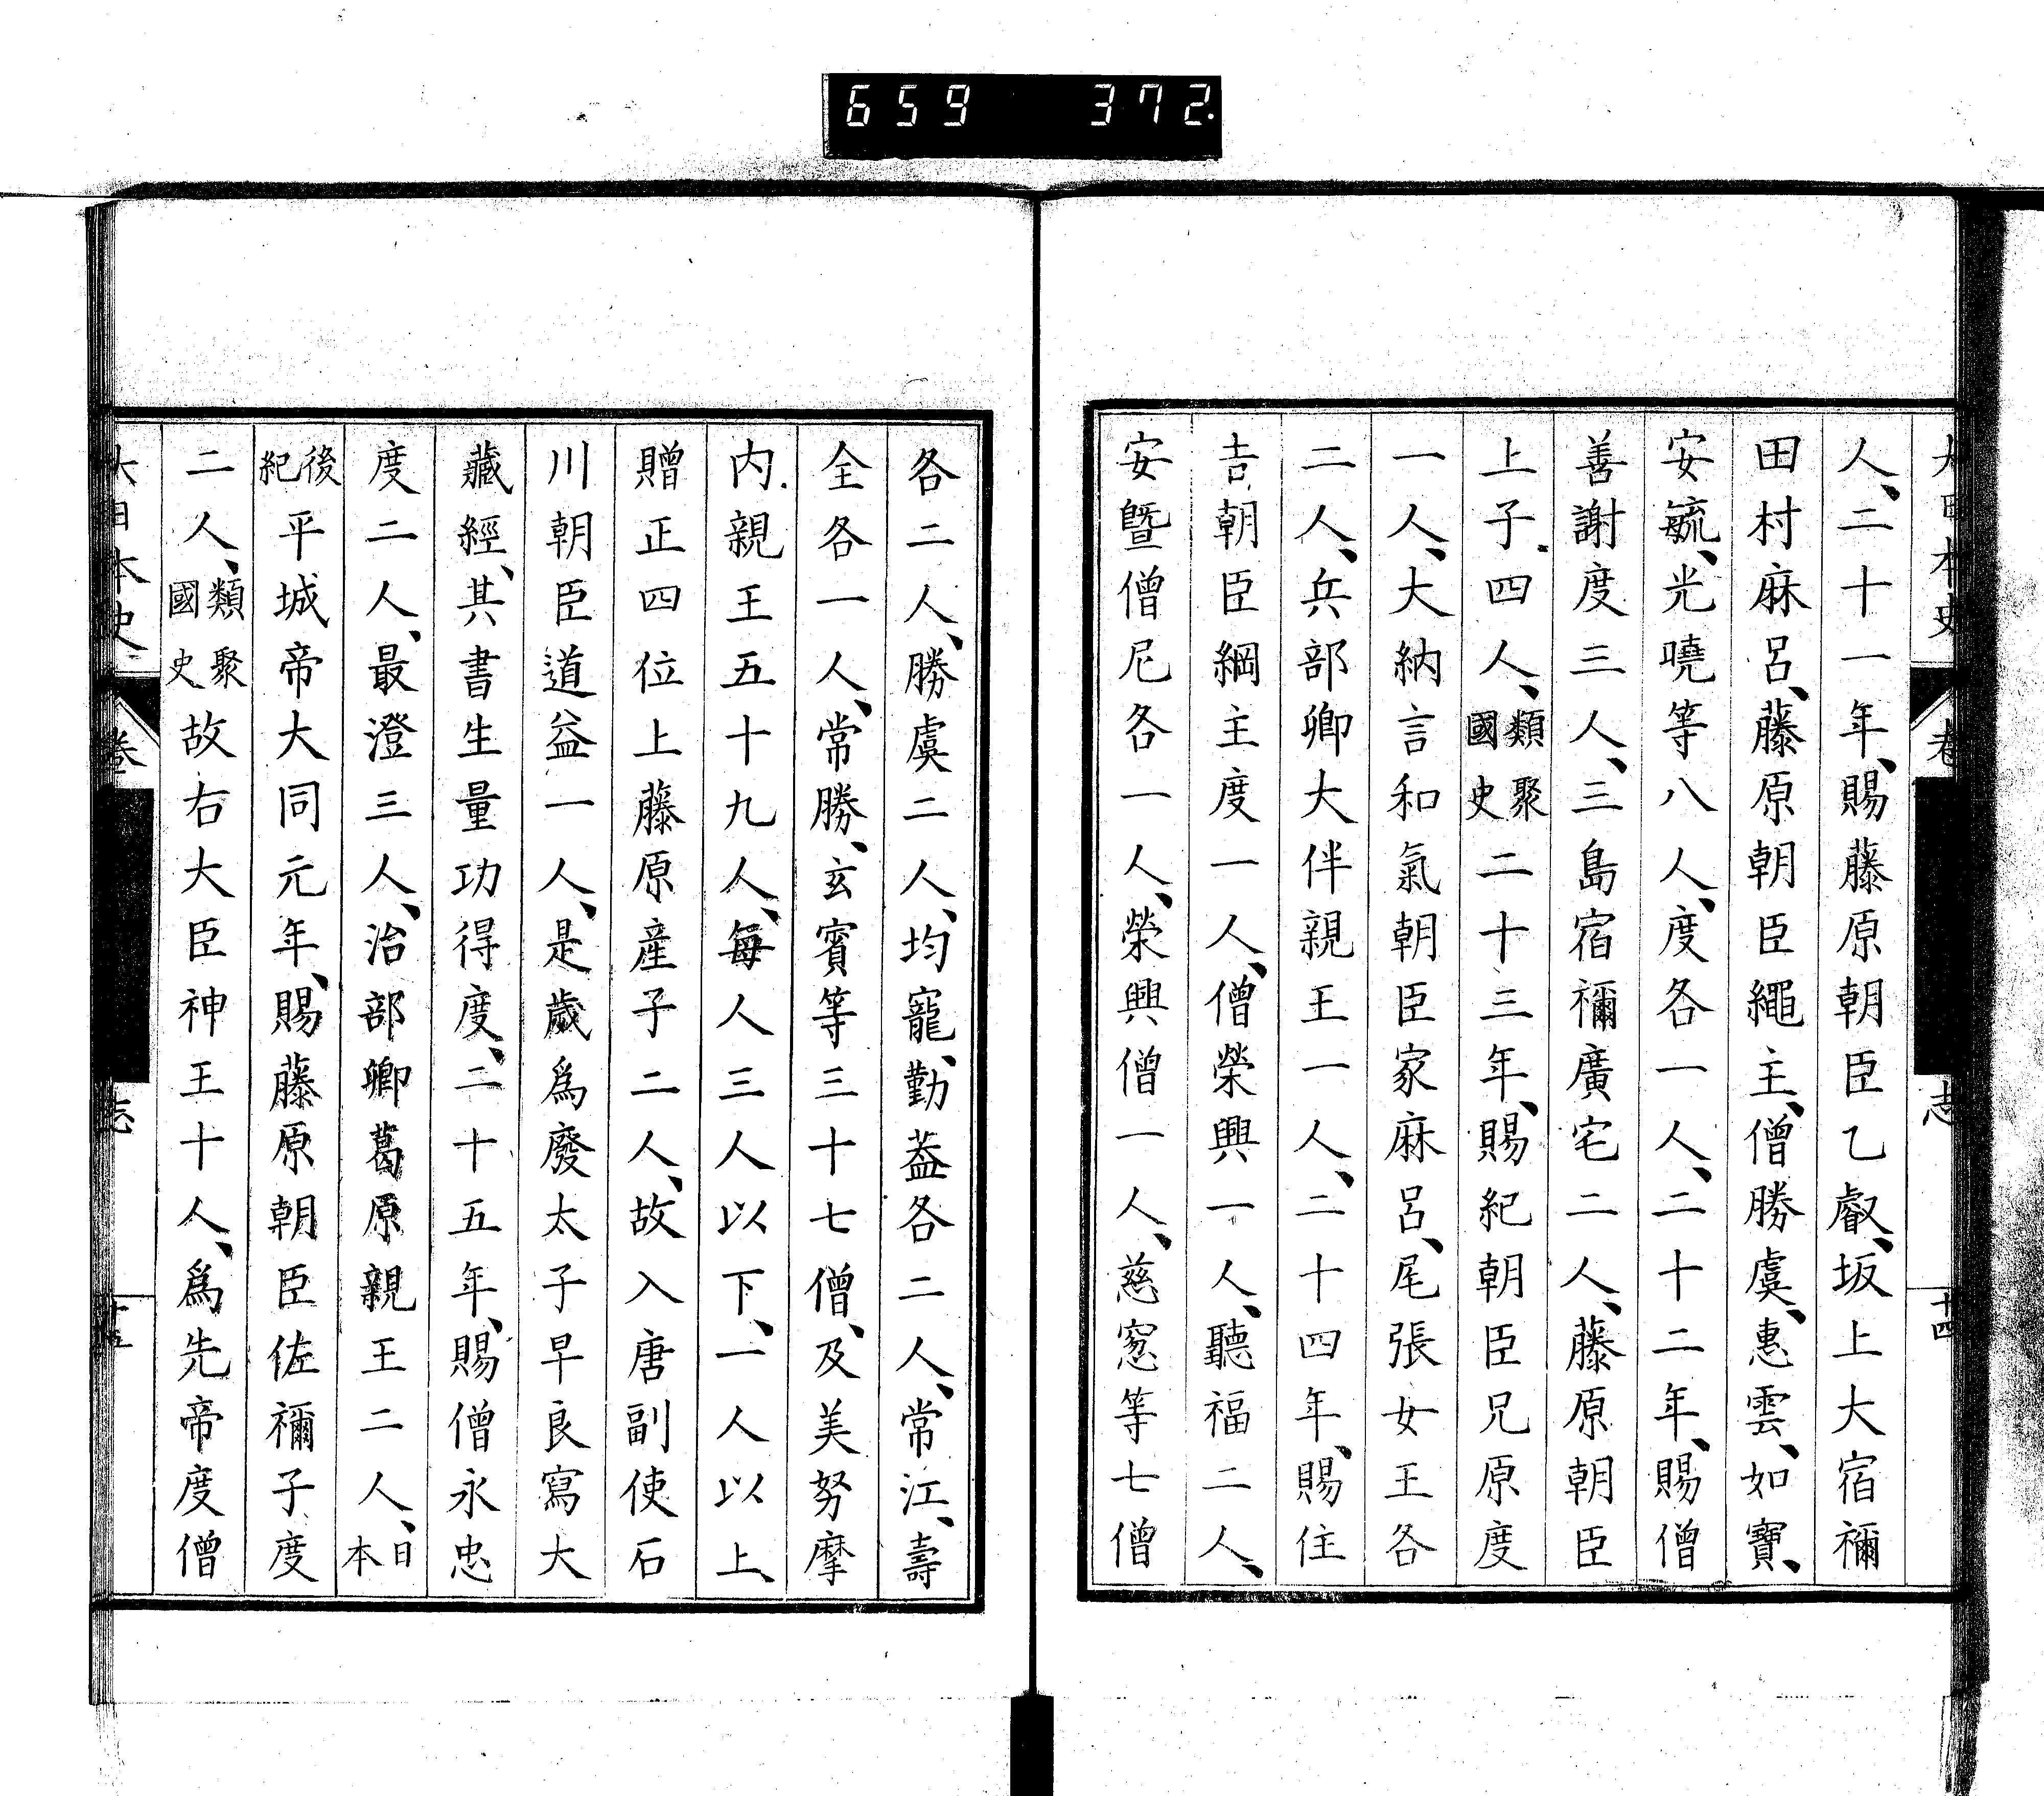 659 372
大日本史 卷 志 十四
人、二十一年、賜藤原朝臣乙叡、坂上大宿禰
田村麻呂、藤原朝臣繩主、僧勝虞、惠雲、如寶、
安毓、光曉等八人、度各一人、二十二年、賜僧
善謝度三人、三島宿禰廣宅二人、藤原朝臣
上子四人、類聚國史二十三年、賜紀朝臣兄原度
一人、大納言和氣朝臣家麻呂、尾張女王各
二人、兵部卿大伴親王一人、二十四年、賜住
吉朝臣綱主度一人、僧榮興一人、聽福二人、
安曁僧尼各一人、榮興僧一人、慈窓等七僧
各二人、勝虞二人、均寵、勤葢各二人、常江、壽
全各一人、常勝、玄賓等三十七僧、及美努摩
内親王五十九人、每人三人以下、一人以上、
贈正四位上藤原産子二人、故入唐副使石
川朝臣道益一人、是歲爲廢太子早良寫大
藏經、其書生量功得度、二十五年、賜僧永忠
度二人、最澄三人、治部卿葛原親王二人、日本
後紀平城帝大同元年、賜藤原朝臣佐禰子度
二人、類聚國史故右大臣神王十人、爲先帝度僧
大日本史 卷 志 十五